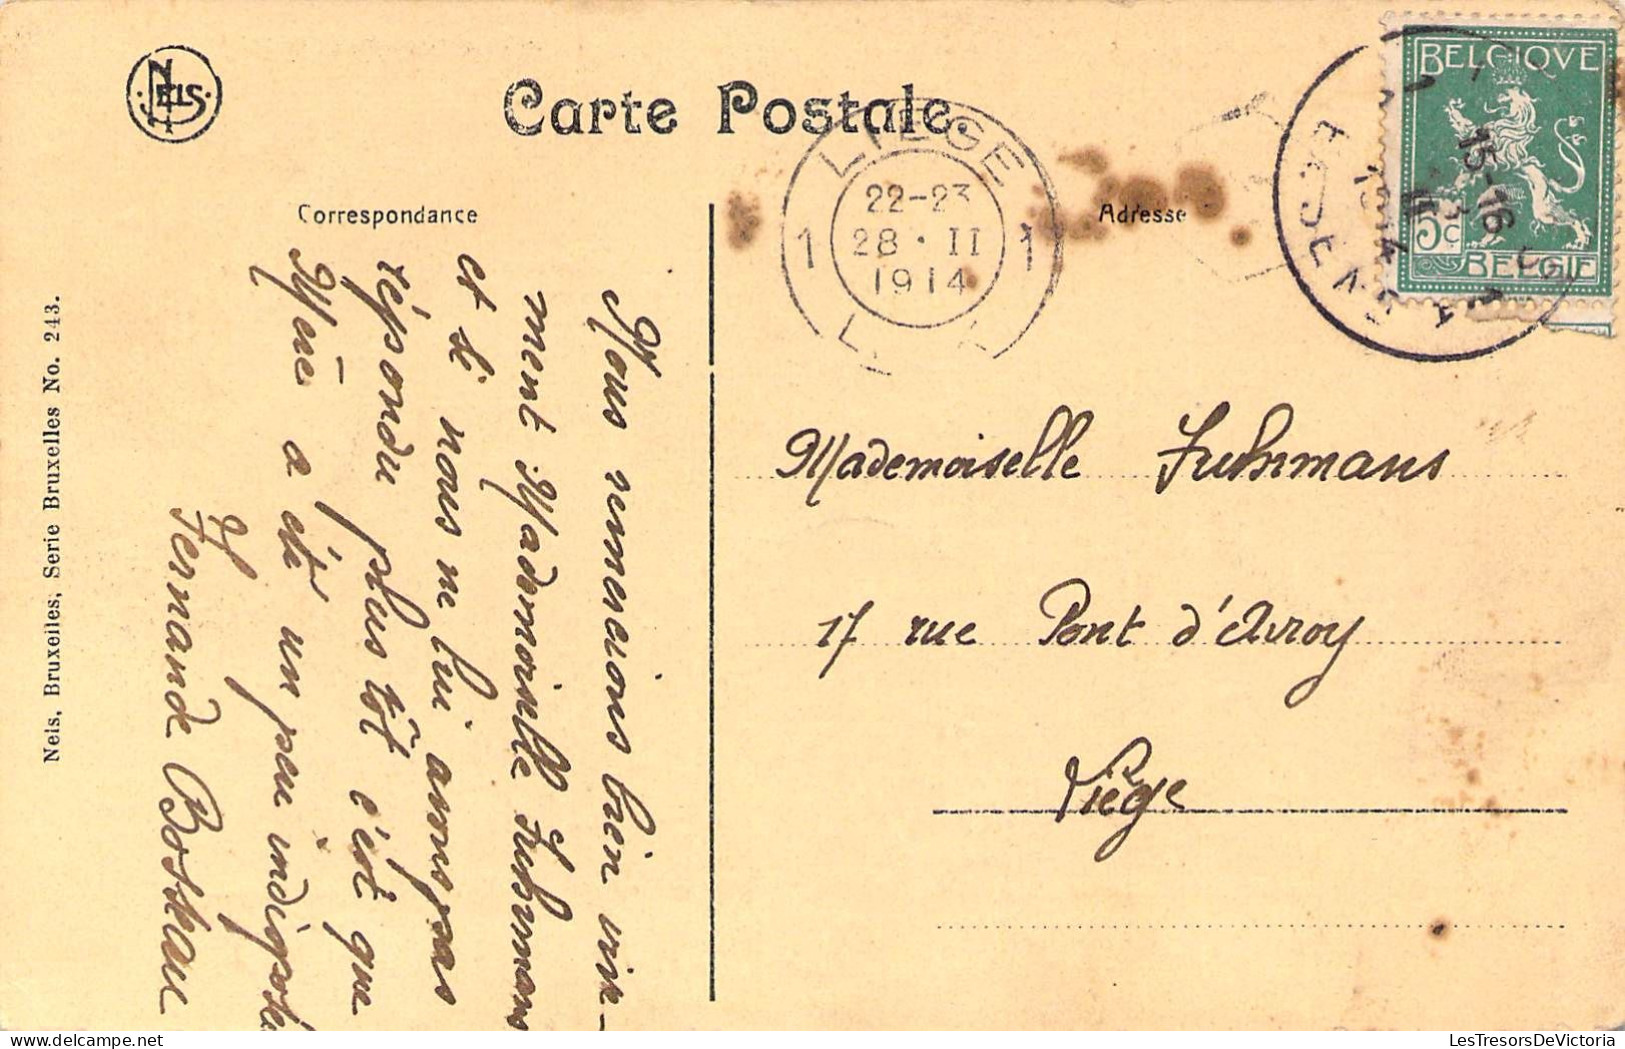 NELS
Carte Postale.
BELGIQUE
5c
BELGIE
15-16
1914
LIEGE
22-23
1 28·II 1
1914
L
Correspondance
Adresse
Nels, Bruxelles, Serie Bruxelles No. 243.
Nous remercions bien vive-
ment Mademoiselle Fuhrmans
et si nous ne lui avons pas
répondu plus tôt c'est que
Mère a été un peu indisposée
Fernande Boskau
Mademoiselle Fuhrmans
17 rue Pont d'Avroy
Liège
LesTresorsDeVictoria.com